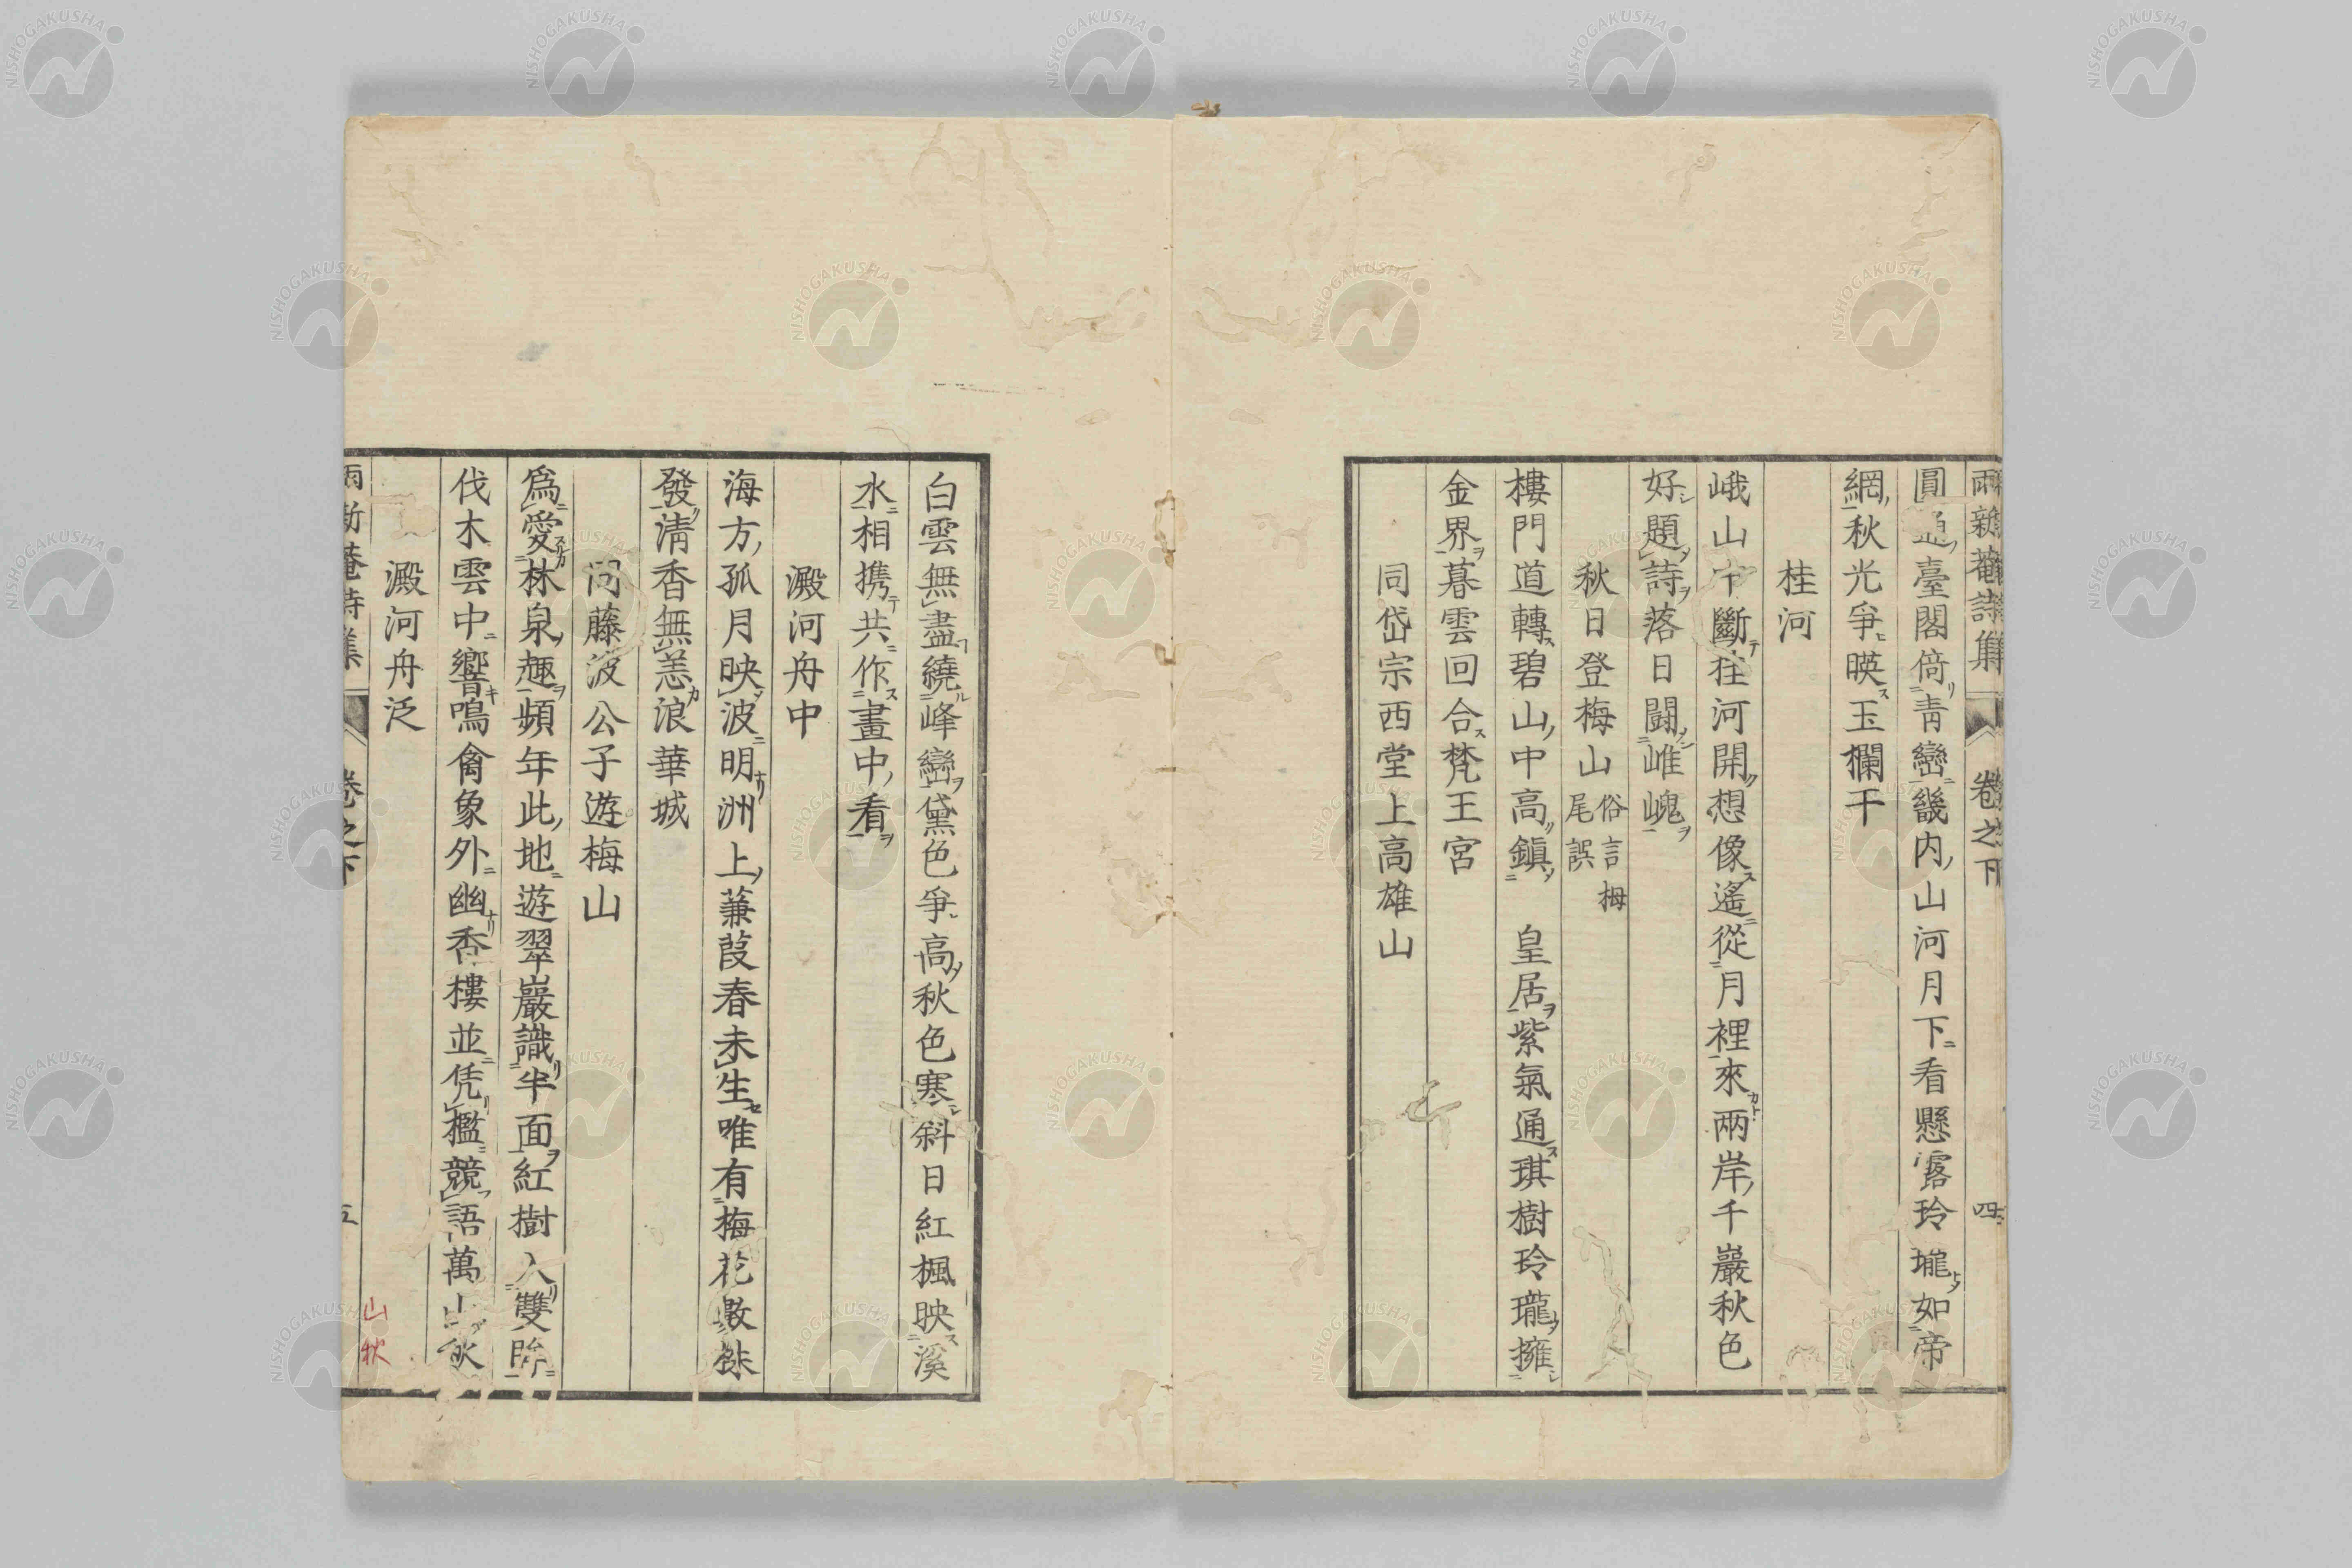 雨新菴詩集 卷之下 四
圓通臺閣倚靑巒畿內山河月下看懸露玲瓏如帝
網秋光爭暎玉欄干
桂河
峨山中斷往河開想像遙從月裡來兩岸千巖秋色
好題詩落日鬪崔嵬
秋日登梅山俗言栂尾誤
樓門道轉碧山中高鎭 皇居紫氣通琪樹玲瓏擁
金界暮雲回合梵王宮
同岱宗西堂上高雄山
白雲無盡繞峰巒黛色爭高秋色寒斜日紅楓映溪
水相携共作畫中看
澱河舟中
海方孤月映波明洲上蒹葭春未生唯有梅花數株
發淸香無恙浪華城
同藤波公子遊梅山
爲愛林泉趣頻年此地遊翠巖識半面紅樹入雙眸
伐木雲中響鳴禽象外幽香樓並凭檻競語萬山秋
山秋
澱河舟泛
雨新菴詩集 卷之下 五
NISHOGAKUSHA